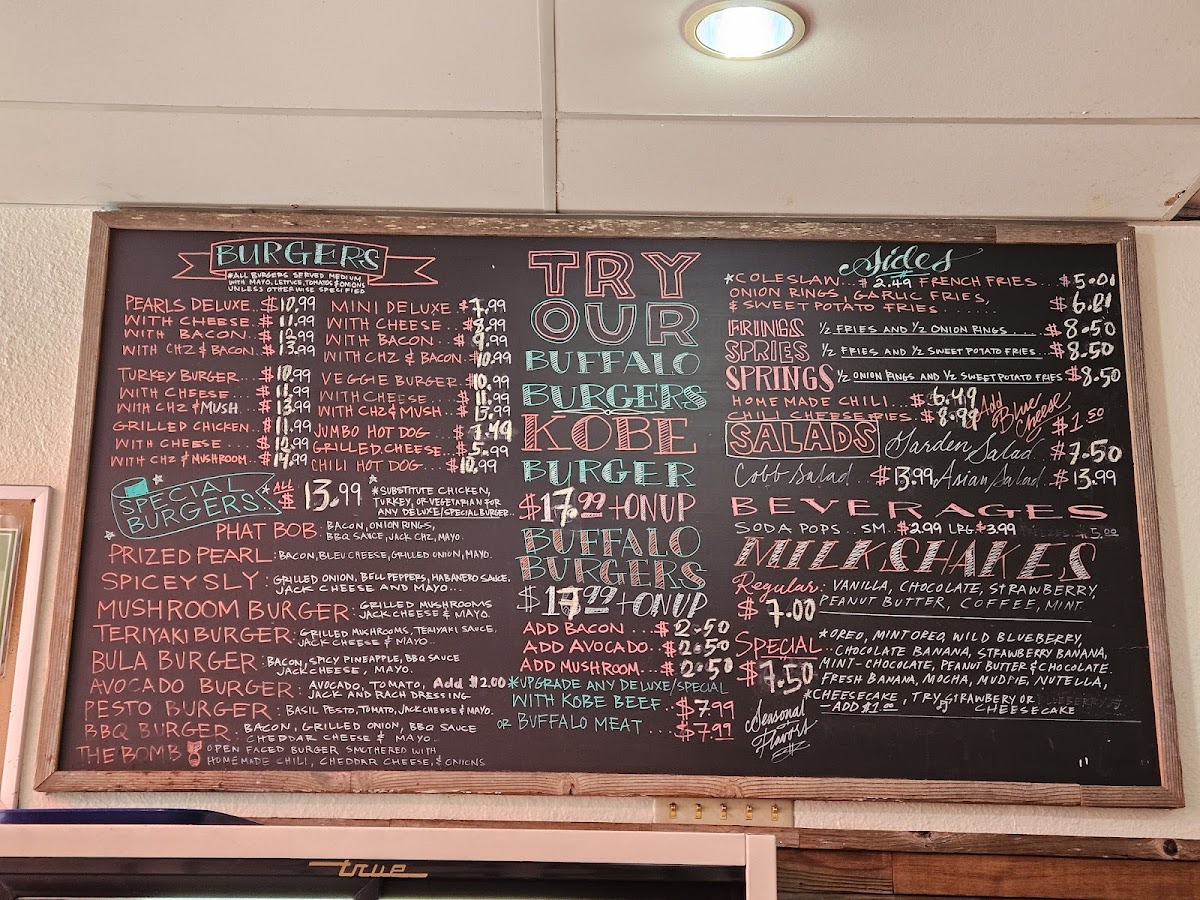 BURGERS
*ALL BURGERS SERVED MEDIUM
WITH MAYO, LETTUCE, TOMATOS & ONIONS
UNLESS OTHERWISE SPECIFIED
PEARLS DELUXE..$10.99
WITH CHEESE...$11.99
WITH BACON...$12.99
WITH CHZ & BACON..$13.99
MINI DELUXE $7.99
WITH CHEESE...$8.99
WITH BACON...$9.99
WITH CHZ & BACON..$10.99
TURKEY BURGER...$10.99
WITH CHEESE...$11.99
WITH CHZ & MUSH...$13.99
GRILLED CHICKEN..$11.99
WITH CHEESE....$12.99
WITH CHZ & MUSHROOM..$14.99
VEGGIE BURGER..$10.99
WITH CHEESE...$11.99
WITH CHZ & MUSH...$13.99
JUMBO HOT DOG...$7.49
GRILLED CHEESE..$5.99
CHILI HOT DOG...$10.99
SPECIAL BURGERS
*ALL $13.99
*SUBSTITUTE CHICKEN,
TURKEY, OR VEGETARIAN FOR
ANY DELUXE/SPECIAL BURGER..
PHAT BOB: BACON, ONION RINGS,
BBQ SAUCE, JACK CHZ, MAYO.
PRIZED PEARL: BACON, BLEU CHEESE, GRILLED ONION, MAYO.
SPICEY SLY: GRILLED ONION, BELL PEPPERS, HABANERO SAUCE,
JACK CHEESE AND MAYO...
MUSHROOM BURGER: GRILLED MUSHROOMS
JACK CHEESE & MAYO.
TERIYAKI BURGER: GRILLED MUSHROOMS, TERIYAKI SAUCE,
JACK CHEESE & MAYO..
BULA BURGER: BACON, SPICY PINEAPPLE, BBQ SAUCE
JACK CHEESE, MAYO.
AVOCADO BURGER: AVOCADO, TOMATO, Add $2.00
JACK AND RACH DRESSING
PESTO BURGER: BASIL PESTO, TOMATO, JACK CHEESE & MAYO.
BBQ BURGER: BACON, GRILLED ONION, BBQ SAUCE
CHEDDAR CHEESE & MAYO..
THE BOMB OPEN FACED BURGER SMOTHERED WITH
HOMEMADE CHILI, CHEDDAR CHEESE, & ONIONS
TRY
OUR
BUFFALO
BURGERS
KOBE
BURGER
$17.99 + ON UP
BUFFALO
BURGERS
$17.99 + ON UP
ADD BACON...$2.50
ADD AVOCADO..$2.50
ADD MUSHROOM...$2.50
*UPGRADE ANY DELUXE/SPECIAL
WITH KOBE BEEF..$7.99
OR BUFFALO MEAT...$7.99
Sides
*COLESLAW...$2.49 FRENCH FRIES...$5.01
ONION RINGS, GARLIC FRIES,
& SWEET POTATO FRIES.......$6.01
FRINGS ½ FRIES AND ½ ONION RINGS....$8.50
SPRIES ½ FRIES AND ½ SWEET POTATO FRIES..$8.50
SPRINGS ½ ONION RINGS AND ½ SWEET POTATO FRIES $8.50
HOME MADE CHILI...$6.49
CHILI CHEESE FRIES..$8.99
Add Blue Cheese $1.50
SALADS Garden Salad..$7.50
Cobb Salad..$13.99 Asian Salad..$13.99
BEVERAGES
SODA POPS. SM..$2.99 LRG $3.99 $5.00
MILKSHAKES
Regular: VANILLA, CHOCOLATE, STRAWBERRY,
$7.00 PEANUT BUTTER, COFFEE, MINT.
SPECIAL $7.50
*OREO, MINT OREO, WILD BLUEBERRY,
CHOCOLATE BANANA, STRAWBERRY BANANA,
MINT-CHOCOLATE, PEANUT BUTTER & CHOCOLATE
FRESH BANANA, MOCHA, MUDPIE, NUTELLA,
*CHEESECAKE, TRY STRAWBERY OR
-ADD $1.00 CHEESECAKE
Seasonal
Flavors
true